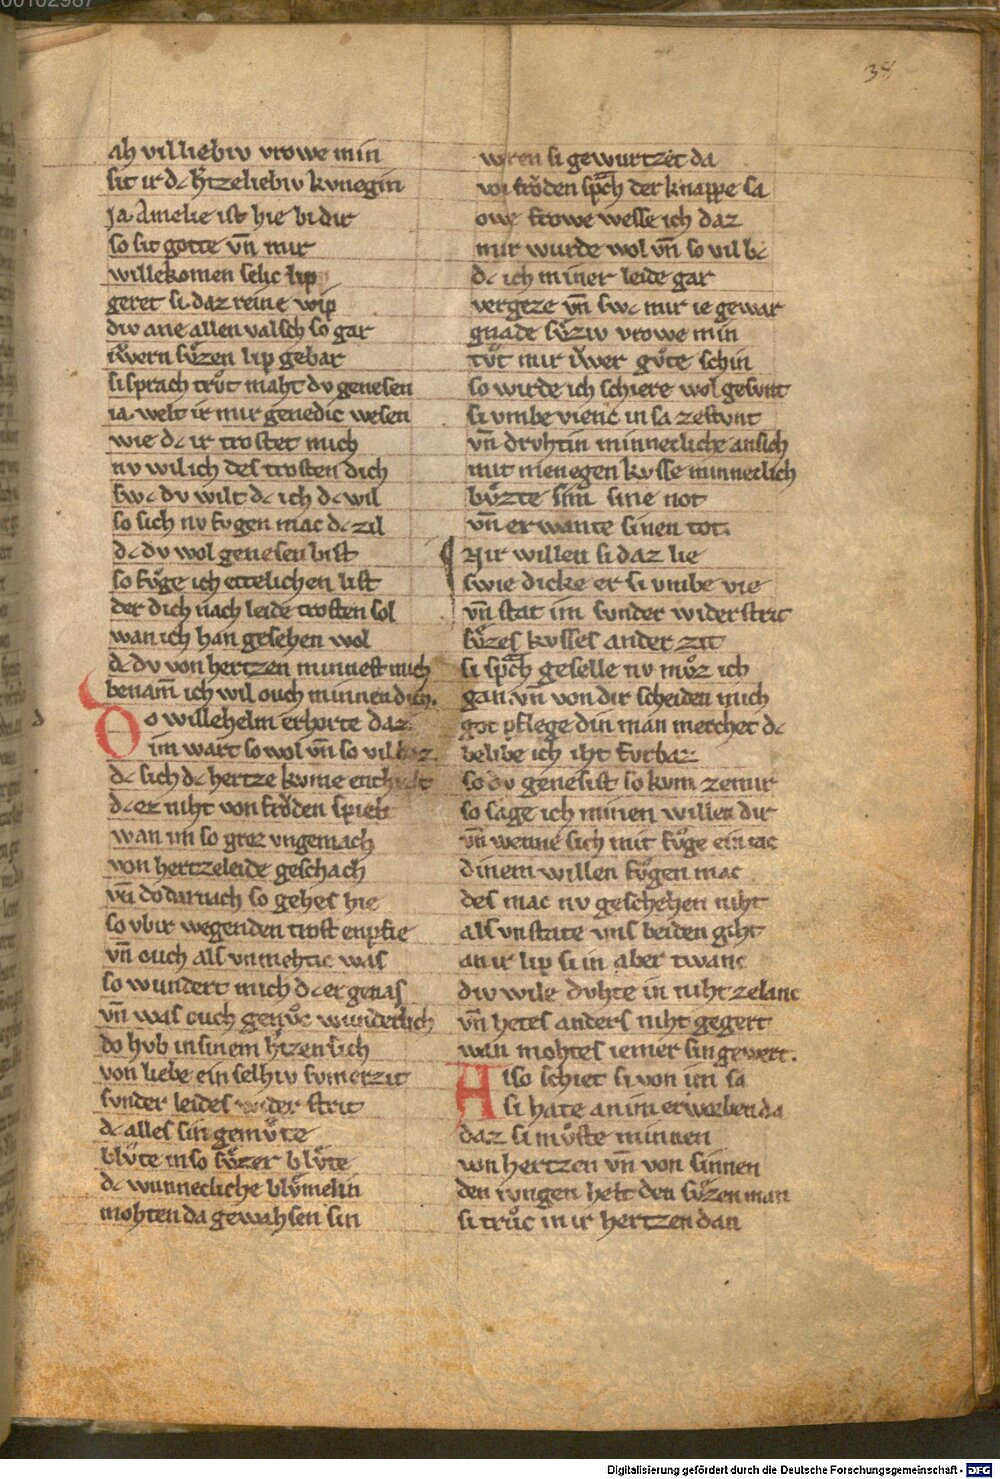 00102987
38
ah vil liebiv vrowe min
sit ir dc h̄tzeliebiv kvnegin
Ja. Amelie ist hie bi dir
so sit gotte vn̄ mir
willekomen selic lip
geret si. daz reine wip
div ane allen valsch so gar
iwern sůzen lip gebar
si sprach trůt maht dv genesen
ia. welt ir mir genedic wesen
wie dc ir trostet mich
nv wil ich des trosten dich
swc dv wilt dc ich dc wil
so sich nv fvgen mac dc zil
dc dv wol genesen bist
so fůge ich ettelichen list
der dich nach leide trosten sol
wan ich han gesehen wol
dc dv von hertzen minnest mich
benam̄ ich wil ouch minnen dich.
Do willehelm erhorte daz
im wart so wol vn̄ so vil baz
dc sich dc hertze kvme enthielt
dc ez niht von frőden spielt
wan im so groz vngemach
von hertzeleide geschach
vn̄ do darnach so gehes hie
so vbir wegenden trost enpfie
vn̄ ouch als vnmehtic was
so wundert mich dc er genas
vn̄ was ouch genůc wunderlich
do hvb in sinem h̄zen sich
von liebe ein selhiv svmerzit
svnder leides wider strit
dc alles sin gemůte
blůte in so sůzer blůte
dc wunnecliche blůmelin
mohten da gewahsen sin
wren si gewurtzet da
von frőden sp̄ch der knappe sa
owe frowe wesse ich daz
mir wurde wol vn̄ so vil bc
dc ich miner leide gar
vergeze vn̄ swc mir ie gewar
gnade sůziv vrowe min
tůt mir iwer gůte schin
so wirde ich schiere wol gesvnt
si vmbe vienc in sa zestvnt
vn̄ drvhtin minnecliche an sich
mit menegen kvsse minneclich
bůzte si im sine not
vn̄ erwante sinen tot.
Nir willen si daz lie
swie dicke er si vmbe vie
vn̄ stat im svnder widerstrit
sůzes kvsses ander zit
si sp̄ch geselle nv můz ich
gan. vn̄ von dir scheiden mich
got pflege din man merchet dc
belibe ich iht fvrbaz
so dv genesist so kvm ze mir
so sage ich minen willen dir
vn̄ wenne sich mit fůge ein tac
dinem willen fůgen mac
des mac nv geschehen niht
als vnstate vns beiden giht
an ir lip si in aber twanc
div wile dvhte in niht ze lanc
vn̄ hetes anders niht gegert
wan mohtes iemer sin gewert.
Also schiet si von im sa
si hate an im erworben da
daz si můste minnen
von hertzen vn̄ von sinnen
den iungen helt den sůzen man
si trůc in ir hertzen dan
Digitalisierung gefördert durch die Deutsche Forschungsgemeinschaft - DFG